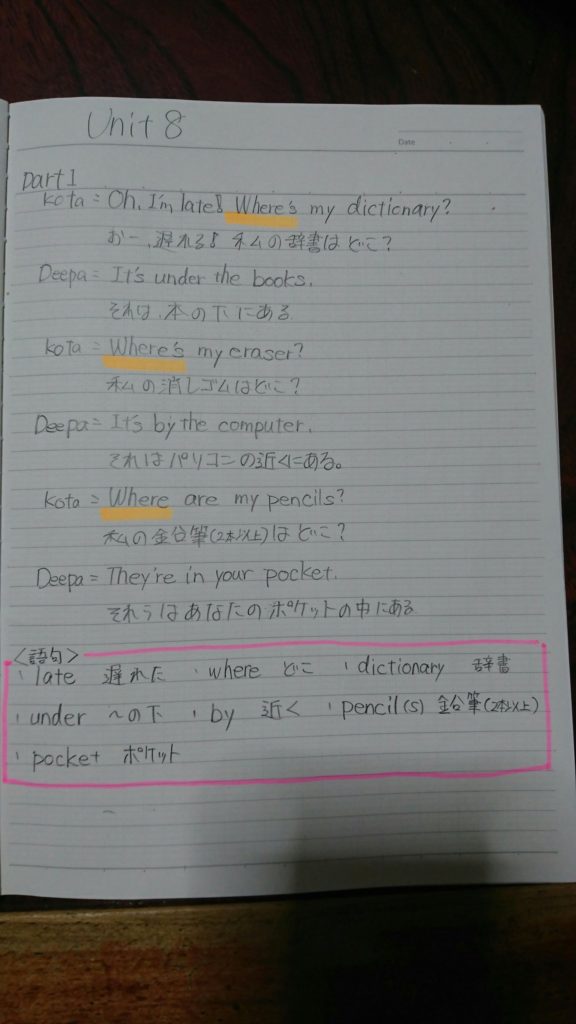 Unit 8
Date
Part 1
Kota = Oh, I'm late! Where's my dictionary?
おー、遅れる! 私の辞書はどこ?
Deepa = It's under the books.
それは、本の下にある
Kota = Where's my eraser?
私の消しゴムはどこ?
Deepa = It's by the computer.
それはパソコンの近くにある。
Kota = Where are my pencils?
私の鉛筆(2本以上)はどこ?
Deepa = They're in your pocket.
それらはあなたのポケットの中にある
<語句>
・late 遅れた ・where どこ ・dictionary 辞書
・under ~の下 ・by 近く ・pencil(s) 鉛筆(2本以上)
・pocket ポケット